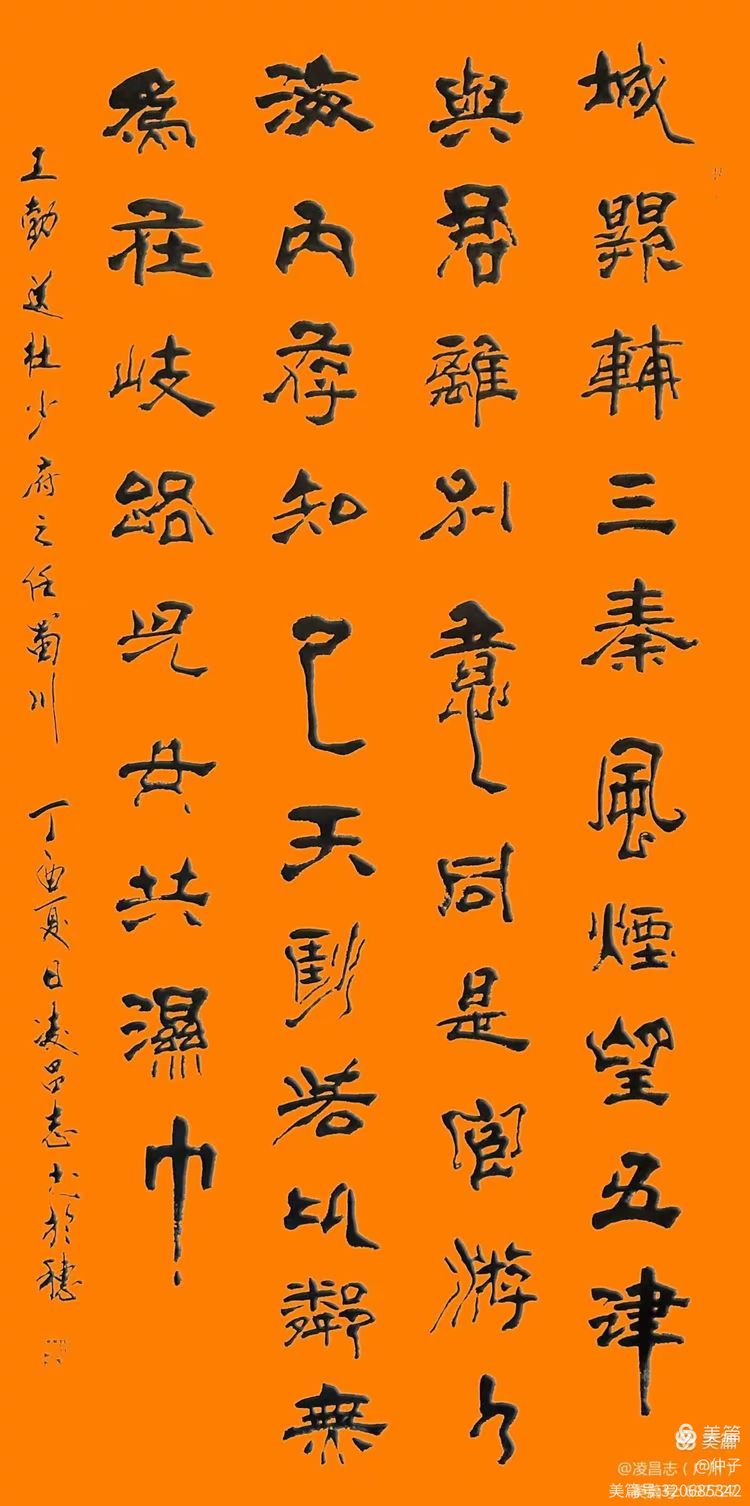 城闕輔三秦風煙望五津
與君離別意同是宦游人
海内存知己天涯若比鄰無
爲在岐路兒女共濕巾
王勃送杜少府之任蜀川 丁酉夏日凌昌志书於穗
美篇
@仲子
@凌昌志
美篇号: